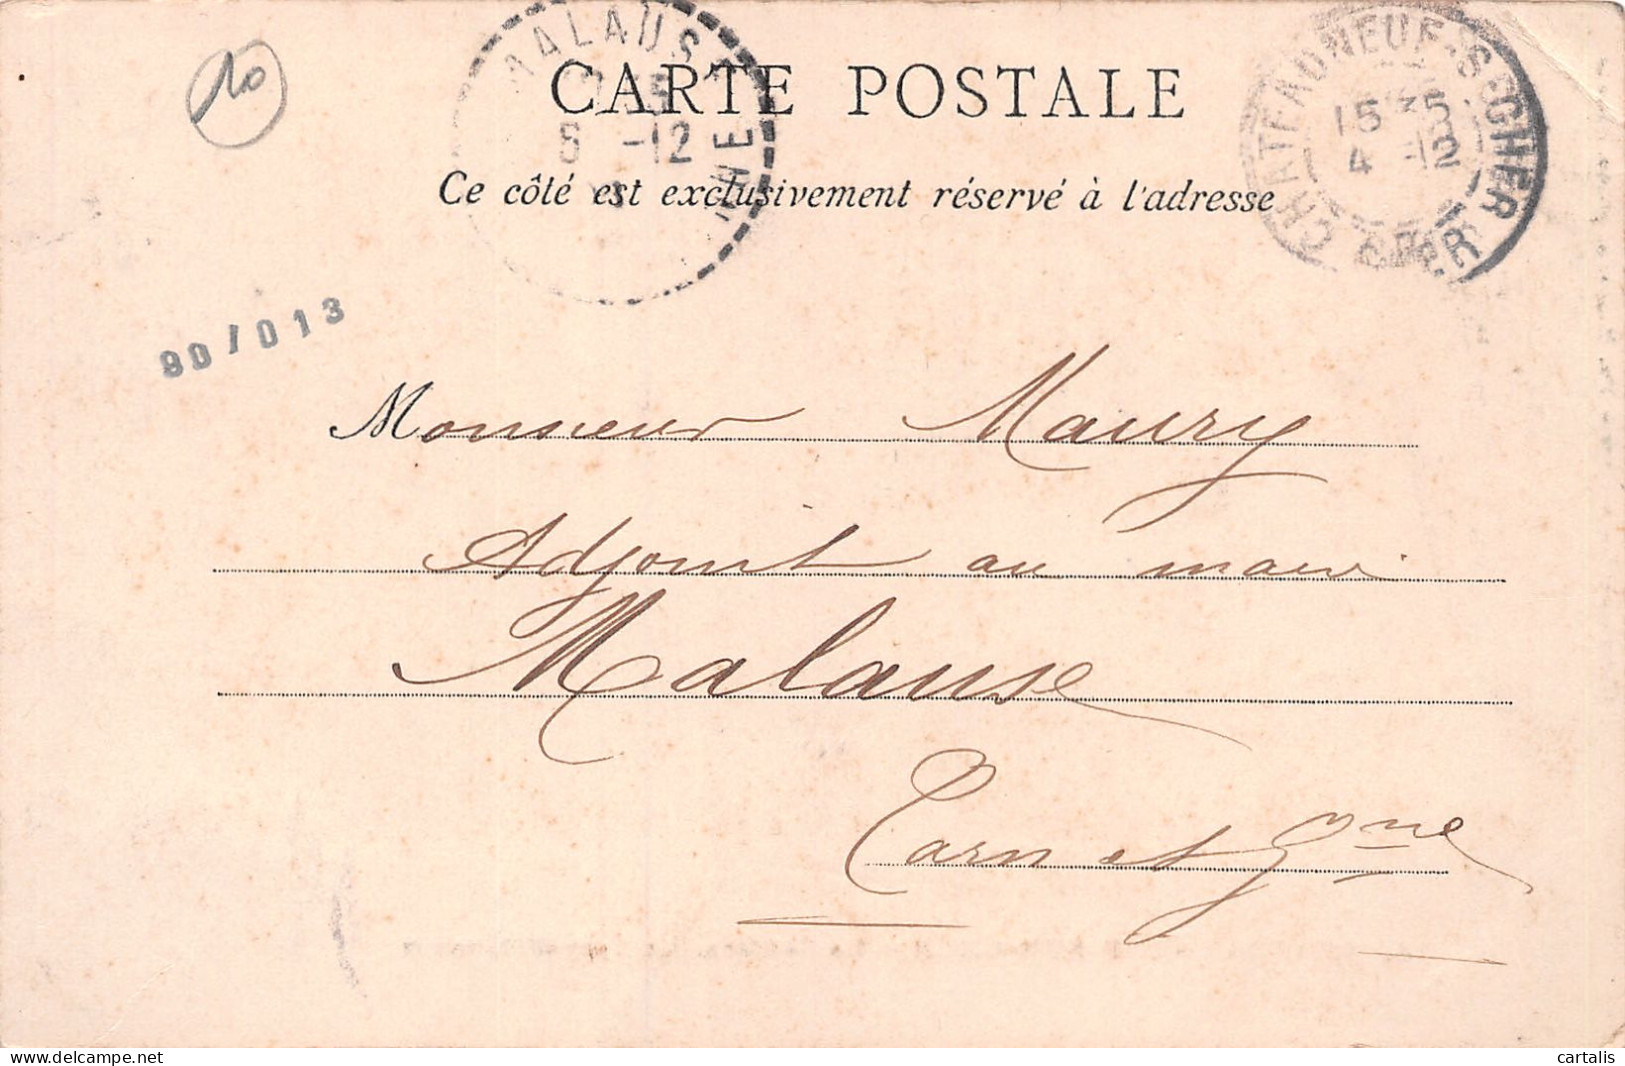 10
MALAUSE
8 -12
CARTE POSTALE
CHATEAUNEUF-S-CHER
15 35
4 -12
CHER
Ce côté est exclusivement réservé à l'adresse
90/013
Monsieur Maury
Adjoint au maire
Malause
Tarn et Gne
cartalis